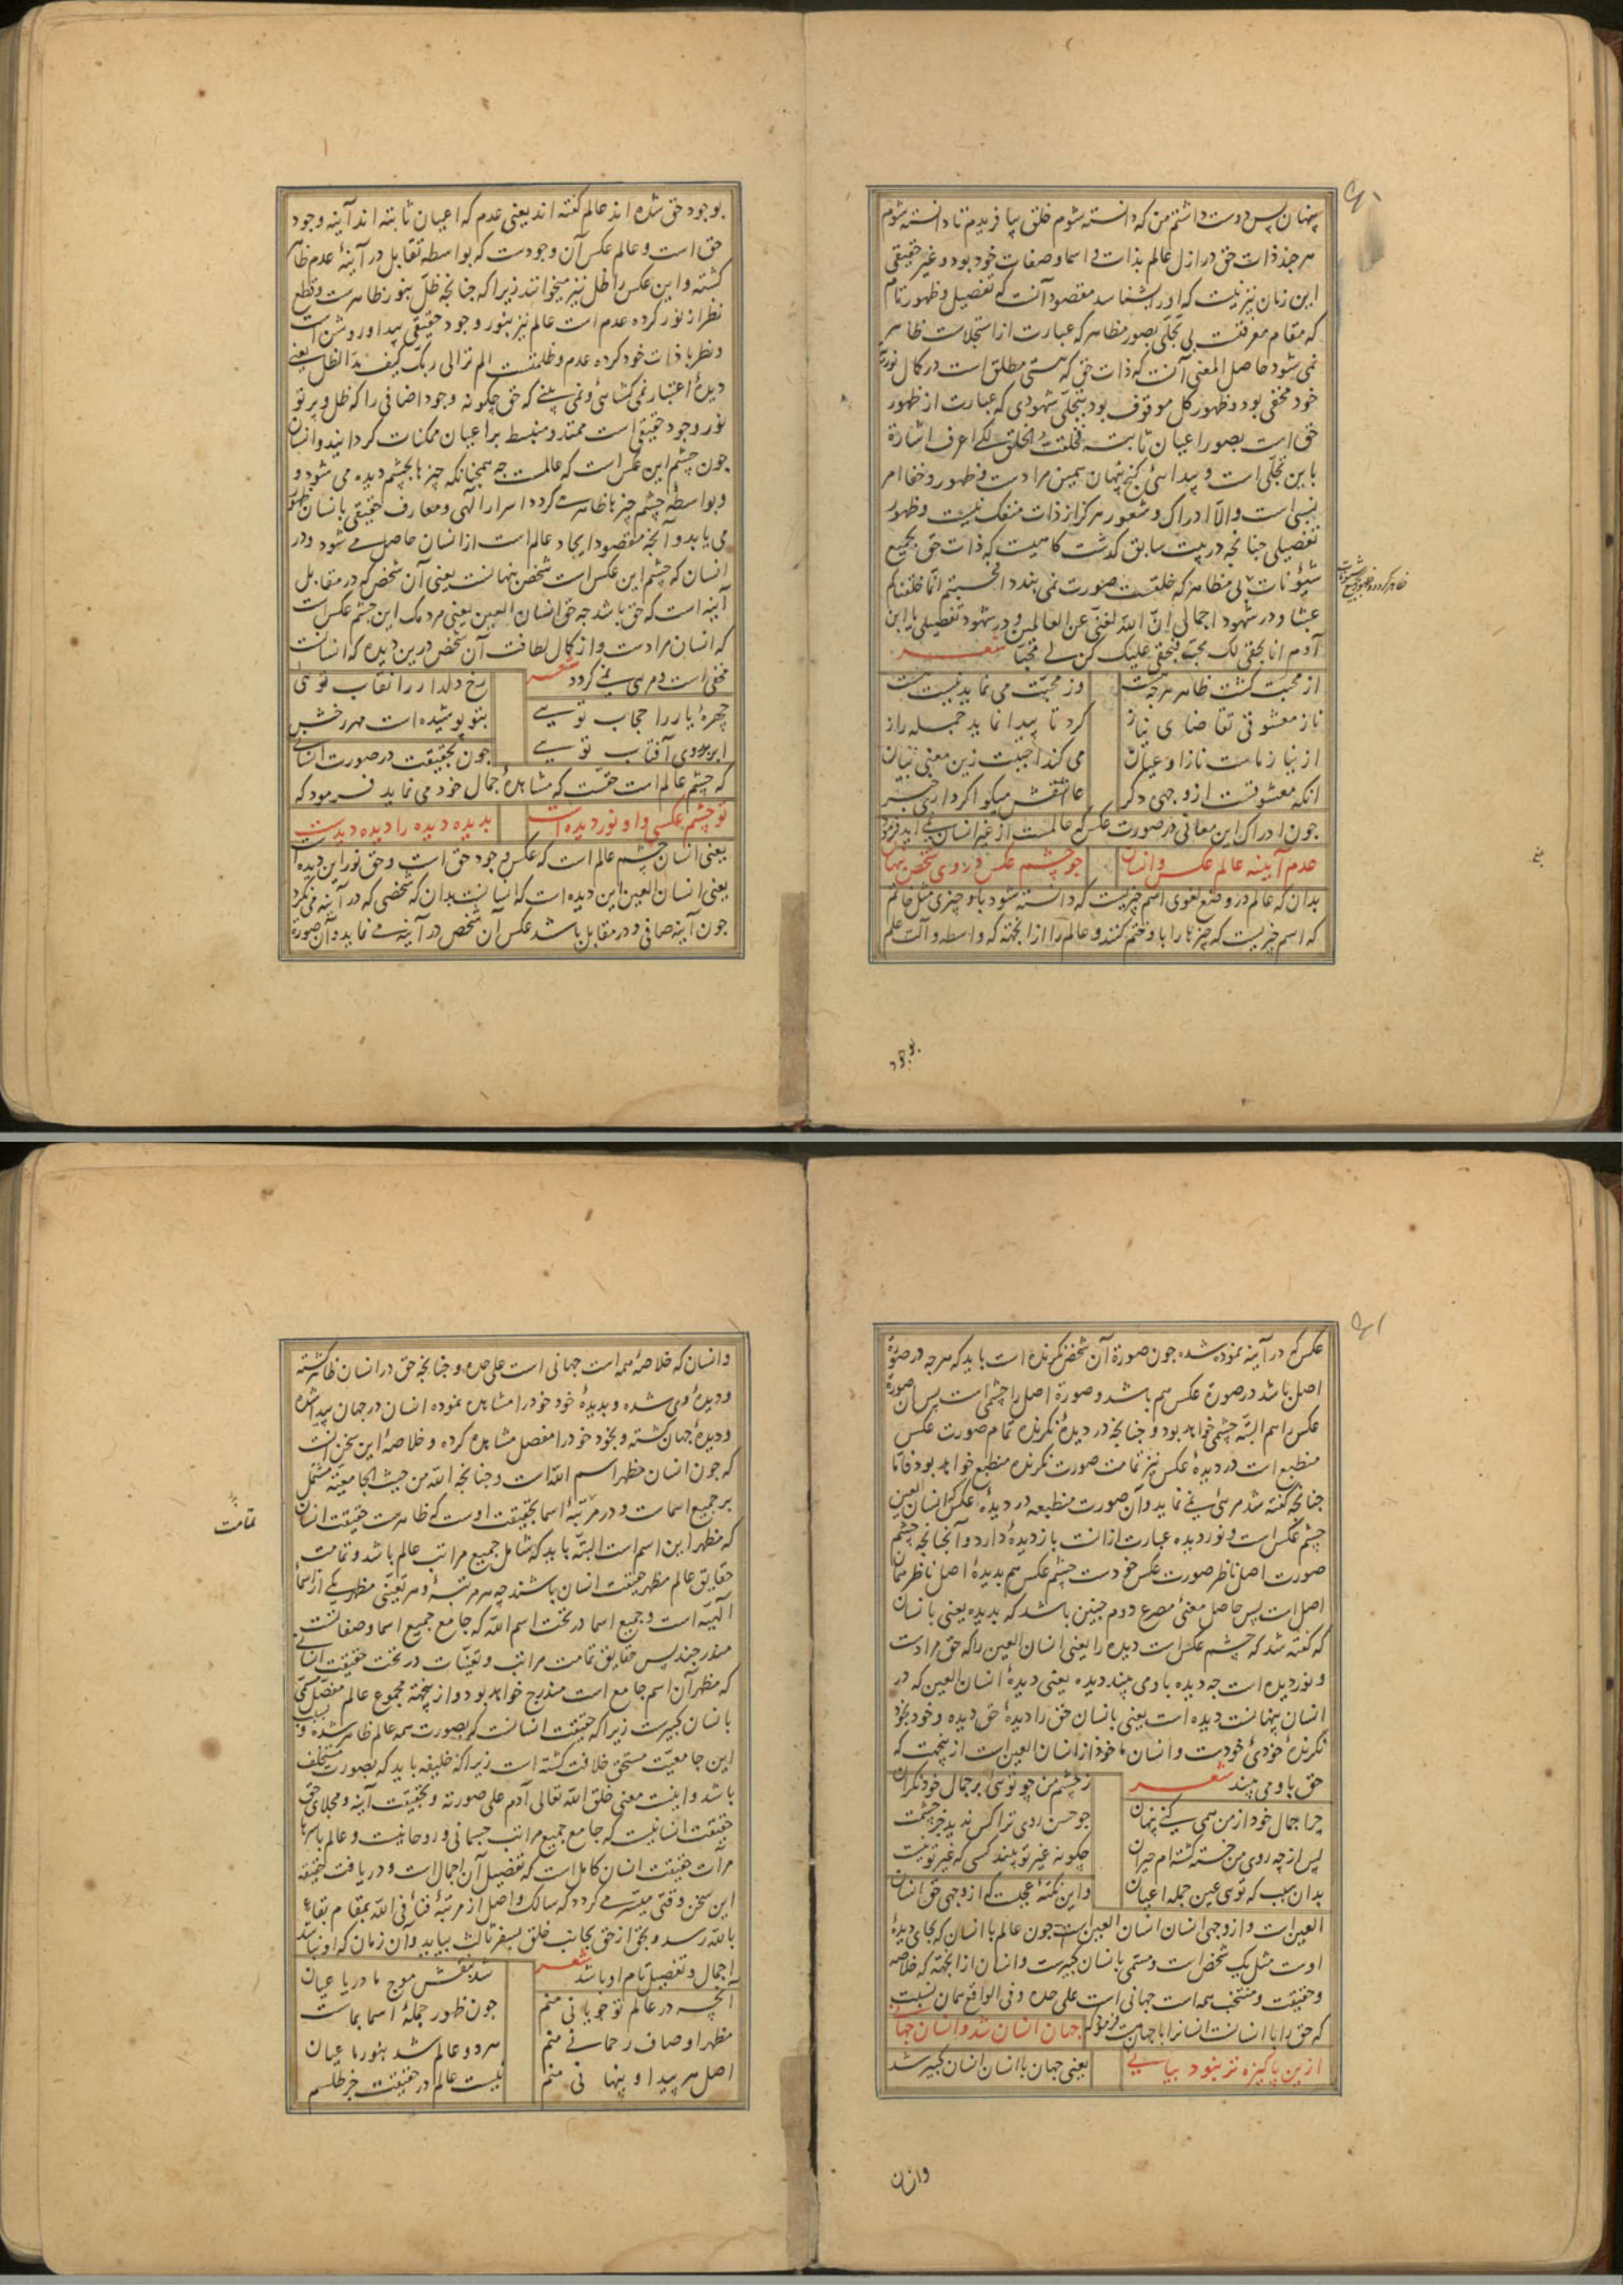 ۶۰
پنهان پس دوست داشتم من که دانسته شوم خلق بیافریدم تا دانسته شوم
هر چند ذات حق در ازل عالم بذات و اسما و صفات خود بود و غیر حقیقی
این زمان نیز نیست که او را شناسد مقصود آنست که تفصیل و ظهور تام
که مقام معرفتست بی تجلی بصور مظاهر که عبارت از استجلاست ظاهر
نمی شود حاصل المعنی آنست که ذات حق که هستی مطلق است در کمال نوریت
خود مخفی بود و ظهور کل موقوف بود بتجلی شهودی که عبارت از ظهور
حق است بصور اعیان ثابته فخلقت الخلق لکی اعرف اشارة
باین تجلی است و پیدائی گنج پنهان همین مرادست و ظهور و خفا امر
نسبی است والا ادراک و شعور هرگز از ذات منفک نیست و ظهور
تفصیلی چنانچه در بیت سابق گذشت کاهیست که ذات حق بجمیع
شیونات بی مظاهر که خلقست صورت نمی بندد افحسبتم انما خلقناکم
عبثا و در شهود اجمالی ان الله لغنی عن العالمین و در شهود تفصیلی یا ابن
آدم انا بحقی لک محب فبحقی علیک کن لی محبا شعر
از محبت گشت ظاهر هر چه هست وز محبت می نماید نیست هست
ناز معشوقی تقاضای نیاز کرد تا پیدا نماید جمله راز
از نیاز ماست ناز او عیان می کند احببت زین معنی بیان
آنکه معشوقست از وجهی دگر عاشقش میگو اگر داری خبر
چون ادراک این معانی در صورت عکس که عالمست از غیر انسان نمی آید فرمود
عدم آیینه عالم عکس و انسان چو چشم عکس در وی شخص پنهان
بدان که عالم در وضع لغوی اسم چیزیست که دانسته شود باو چیزی مثل خاتم
که اسم چیزیست که چیزها را باو ختم کنند و عالم را از آنجهته که واسطه و آلت علم
بوجود
بوجود حق شده اند عالم گفته اند یعنی عدم که اعیان ثابته اند آینه وجود
حق است و عالم عکس آن وجودست که بواسطه تقابل در آینهٔ عدم ظاهر
گشته و این عکس را ظل نیز میخوانند زیرا که چنانچه ظل بنور ظاهرست و قطع
نظر از نور کرده عدم است عالم نیز بنور وجود حقیقی پیدا و روشن است
و نظر با ذات خود کرده عدم و ظلمتست الم تر الی ربک کیف مد الظل یعنی
دیدهٔ اعتبار نمی گشائی و نمی بینی که حق چگونه وجود اضافی را که ظل و پرتو
نور وجود حقیقی است ممتد و منبسط بر اعیان ممکنات گردانید و انسان
چون چشم این عکس است که عالمست چه همچنانکه چیزها بچشم دیده می شود و
و بواسطهٔ چشم چیزها ظاهر می گردد اسرار الهی و معارف حقیقی بانسان ظهور
می یابد و آنچه مقصود ایجاد عالم است از انسان حاصل می شود و در
انسان که چشم این عکس است شخص پنهانست یعنی آن شخص که در مقابل
آینه است که حق باشد چه حق انسان العین یعنی مردمک این چشم عکس است
که انسان مرادست و از کمال لطافت آن شخص درین دیده که انسانست
مخفی است و مرئی نمی گردد شعر رخ دلدار را نقاب توئی
چهرهٔ یار را حجاب تویی بتو پوشیده است مهر رخش
ابر بر روی آفتاب تویی چون بحقیقت در صورت انسانی
که چشم عالم است حقست که مشاهدهٔ جمال خود می نماید فرمود که
تو چشم عکسی و او نور دیده است بدیده دیده را دیده دیدست
یعنی انسان چشم عالم است که عکس وجود حق است و حق نور این دیده است
یعنی انسان العین این دیده است که انسانست بدان که شخصی که در آینه می نگرد
چون آینه صافی و در مقابل باشد عکس آن شخص در آینه می نماید و آن صورة
۶۱
عکس که در آینه نموده شده چون صورة آن شخص نگرنده است باید که هر چه در صورة
اصل باشد در صورة عکس هم باشد و صورة اصل را چشمی است پس آن صورة
عکس را هم البته چشمی خواهد بود و چنانچه در دیدهٔ نگرنده تمام صورت عکس
منطبع است در دیدهٔ عکس نیز تمامت صورت نگرنده منطبع خواهد بود فاما
چنانچه گفته شد مرئی نمی نماید و آن صورت منطبعه در دیدهٔ عکس را انسان العین
چشم عکس است و نور دیده عبارت از آنست باز دیدهٔ دارد و آنچنانچه چشم
صورت اصل ناظر صورت عکس خودست چشم عکس هم بدیدهٔ اصل ناظر همان
اصل است پس حاصل معنی مصرع دوم چنین باشد که بدیده یعنی بانسان
که گفته شد که چشم عکس است دیده را یعنی انسان العین را که حق مرادست
و نور دیده است چه دیده باو می بیند دیده یعنی دیدهٔ انسان العین که در
انسان پنهانست دیده است یعنی بانسان حق را دیدهٔ حق دیده و خود بخود
نگرندهٔ خودی خودست و انسان ماخوذ از انسان العین است ازینجهت که
حق باو می بیند شعر ز چشم من چو توئی بر جمال خود نگران
چرا جمال خود از من همی کنی پنهان چو حسن روی ترا کس ندید جز چشمت
پس از چه روی من خسته گشته ام حیران چگونه غیر تو بیند کسی که غیر تو نیست
بدان سبب که توی عین جمله اعیان و این نکتهٔ عجبست که از وجهی حق انسان
العین است و از وجهی انسان انسان العین است چون عالم با انسان که بجای دیدهٔ
اوست مثل یک شخص است و مسمی بانسان کبیرست و انسان از آنجهته که خلاصه
و حقیقت و منتخب همه است جهانی است علی حده و فی الواقع همان نسبت
که حق را با انسانست انسانرا با جهان هست فرمود که جهان انسان شد و انسان جهانی
ازین پاکیزه تر نبود بیانی یعنی جهان با انسان انسان کبیر شد
وانسان
وانسان که خلاصهٔ همه است جهانی است علی حده و چنانچه حق در انسان ظاهر گشته
و دیدهٔ وی شده و بدیدهٔ خود خود را مشاهده نموده انسان در جهان پیدا شده
و دیدهٔ جهان گشته و بخود خود را مفصل مشاهده کرده و خلاصهٔ این سخن آنست
که چون انسان مظهر اسم الله است و چنانچه الله من حیث الجامعیة مشتمل
بر جمیع اسماست و در مرتبهٔ اسما بحقیقت اوست که ظاهرست حقیقت انسان
که مظهر این اسم است البته باید که شامل جمیع مراتب عالم باشد و تمامت
حقایق عالم مظهر حقیقت انسان باشند چه هر مرتبهٔ و هر تعینی مظهر یکی از اسماء
الهیه است و جمیع اسما در تحت اسم الله که جامع جمیع اسما و صفاتست
مندرجند پس حقایق تمامت مراتب و تعینات در تحت حقیقت انسانی
که مظهر آن اسم جامع است مندرج خواهد بود و ازینجهته مجموع عالم مفصل مسمی
بانسان کبیرست زیرا که حقیقت انسانست که بصورت همه عالم ظاهر شده و بسبب
این جامعیت مستحق خلافت گشته است زیرا که خلیفه باید که بصورت مستخلف
باشد و اینست معنی خلق الله تعالی آدم علی صورته و بحقیقت آینه و مجلای حق
حقیقت انسانیست که جامع جمیع مراتب جسمانی و روحانیست و عالم باسرها
مرآت حقیقت انسان کامل است که تفصیل آن اجمال است و دریافت حقیقه
این سخن وقتی میسر می گردد که سالک واصل از مرتبهٔ فناء فی الله بمقام بقاء
بالله رسد و بحق از حق بجانب خلق بسفر ثالث بیاید و آن زمان که او نباشد
اجمال و تفصیل تام او باشد شعر شد بنقش موج ما دریا عیان
آنچه در عالم تو جویانی منم چون ظهور جملهٔ اسما بماست
مظهر اوصاف رحمانی منم هر دو عالم شد بنور ما عیان
اصل هر پیدا و پنهانی منم نیست عالم در حقیقت جز طلسم
تمامت